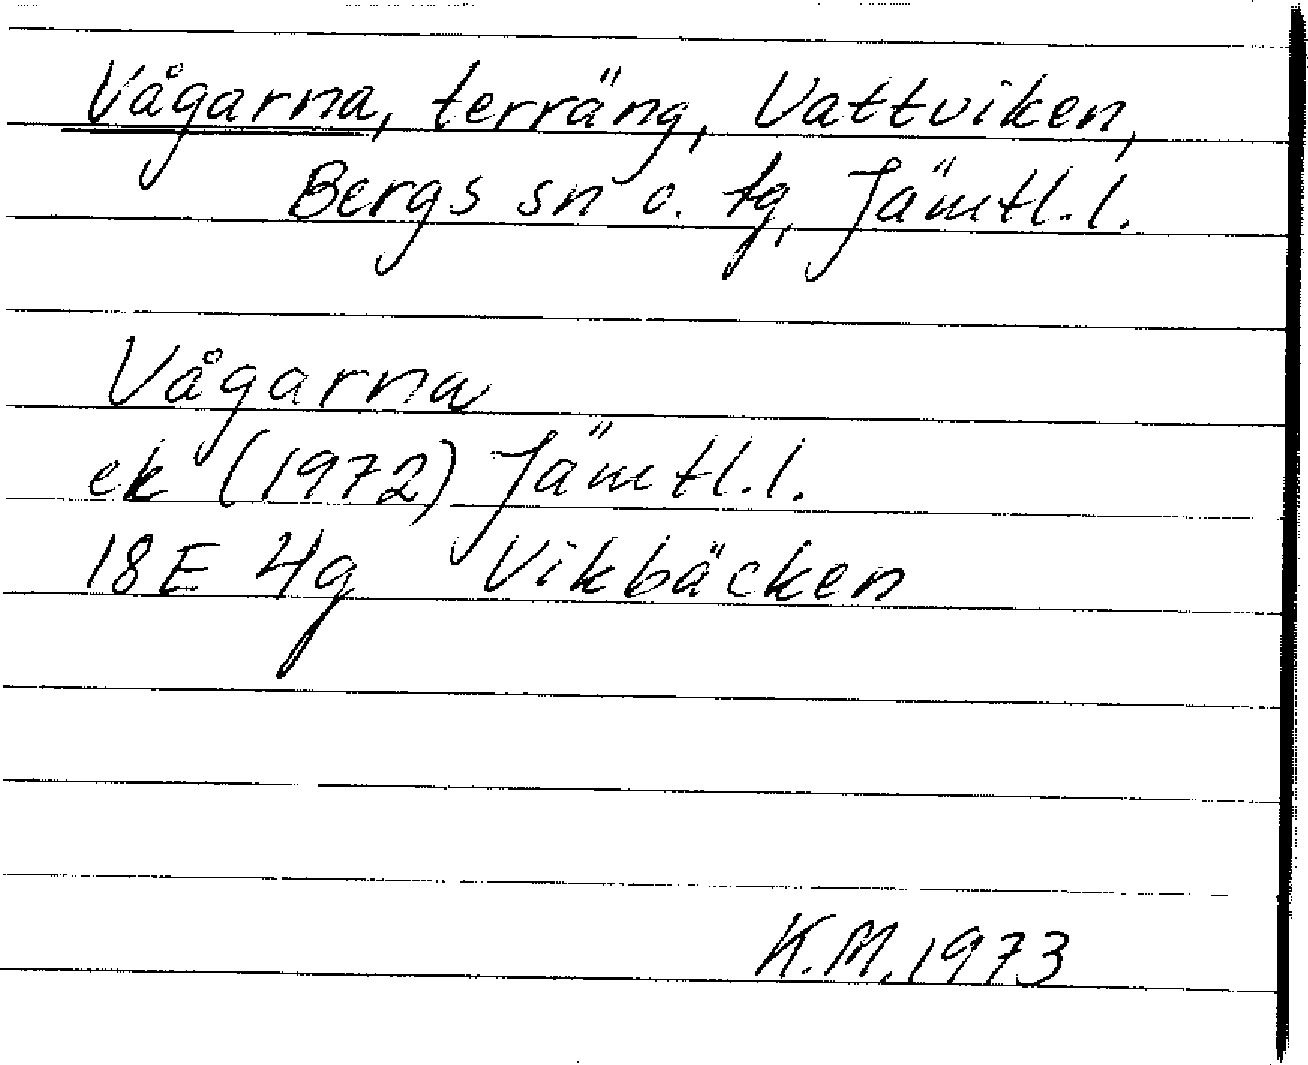 Vågarna, terräng, Vattviken,
Bergs sn o. tg, Jämtl.l.
Vågarna
ek (1972) Jämtl.l.
18E 4g Vikbäcken
K.M.1973